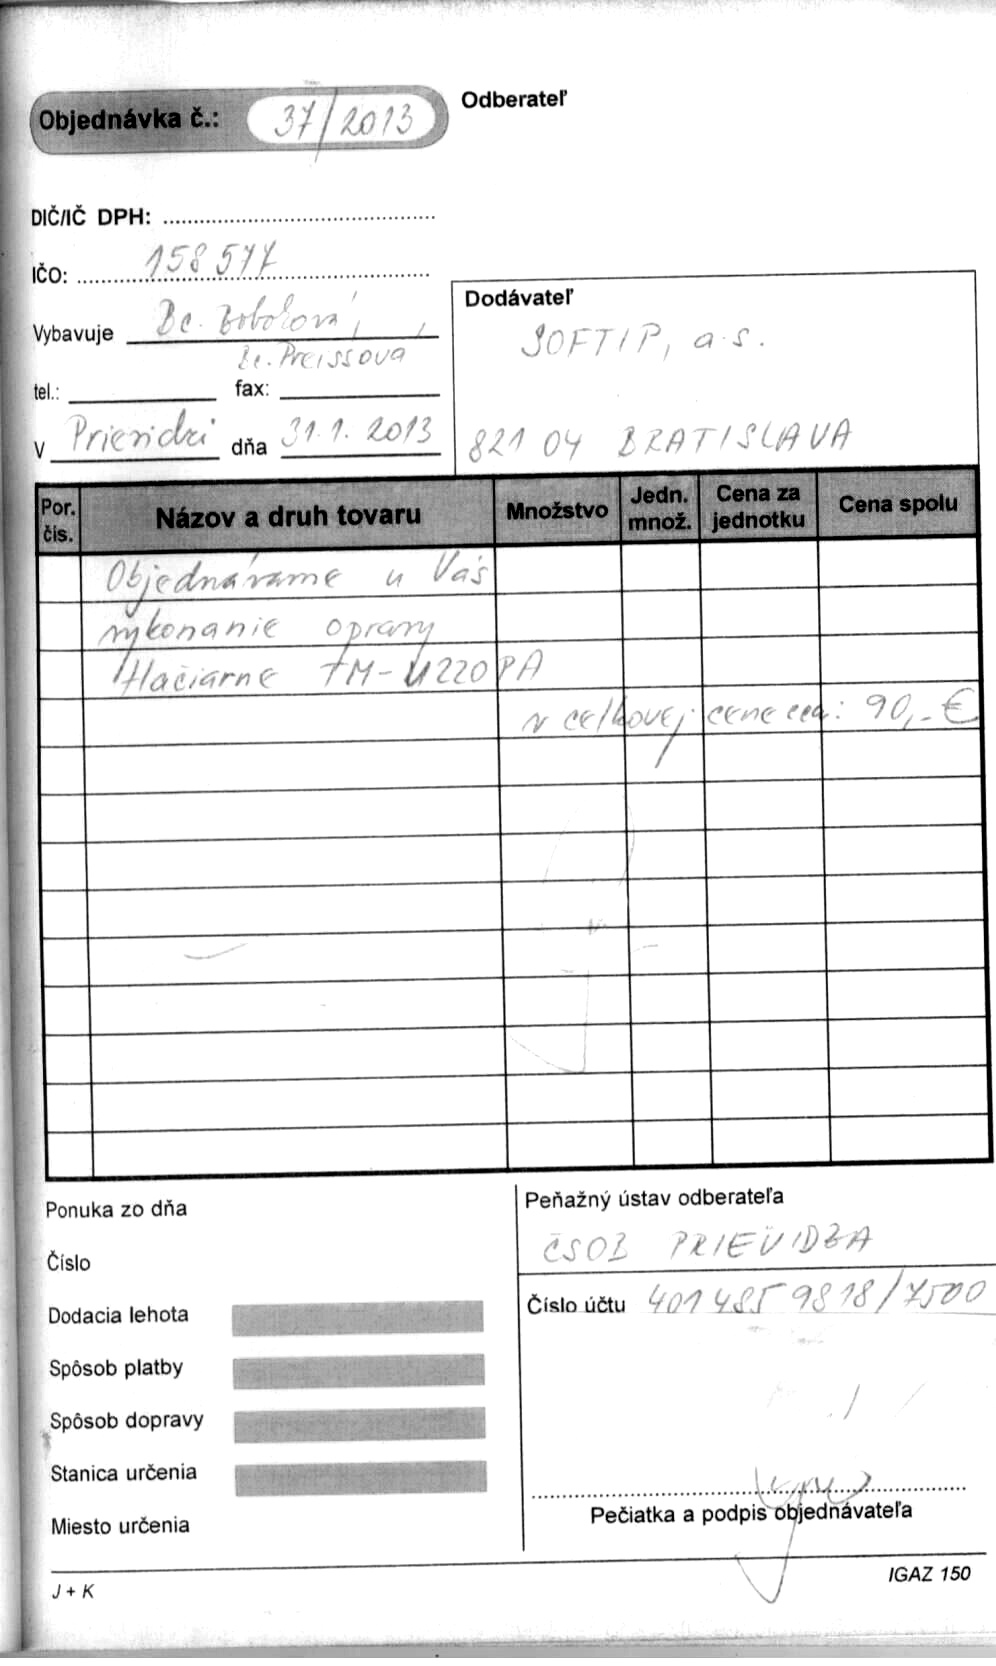 Objednávka č.: 37/2013
Odberateľ
DIČ/IČ DPH:
IČO: 158 577
Vybavuje Bc.
Bc. Preissova
tel.: fax:
V Prievidzi dňa 31.1. 2013
Dodávateľ
SOFTIP, a.s.
821 04 BRATISLAVA
Por. čís. Názov a druh tovaru Množstvo Jedn. množ. Cena za jednotku Cena spolu
Objednávame u Vás
vykonanie opravy
tlačiarne TM-U220PA
v celkovej cene cca: 90,-€
Ponuka zo dňa
Číslo
Dodacia lehota
Spôsob platby
Spôsob dopravy
Stanica určenia
Miesto určenia
Peňažný ústav odberateľa
ČSOB PRIEVIDZA
Číslo účtu 401 485 9818/7500
Pečiatka a podpis objednávateľa
J + K
IGAZ 150